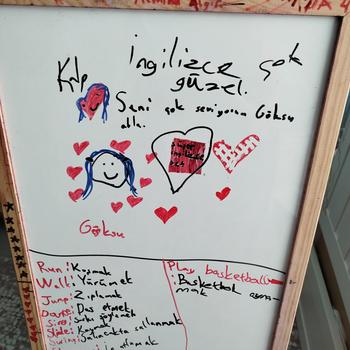 ingilizce çok
güzel.
Kalp
Seni çok seviyorum Göksu
abla.
Göksu
Run: Koşmak
Walk: Yürümek
Jump: Zıplamak
Dance: Das etmek
Sing: Şarkı söylemek
Slide: Kaymak
Swing: Salıncakta sallanmak
Play basketball:
Basketbol oyna-
mak